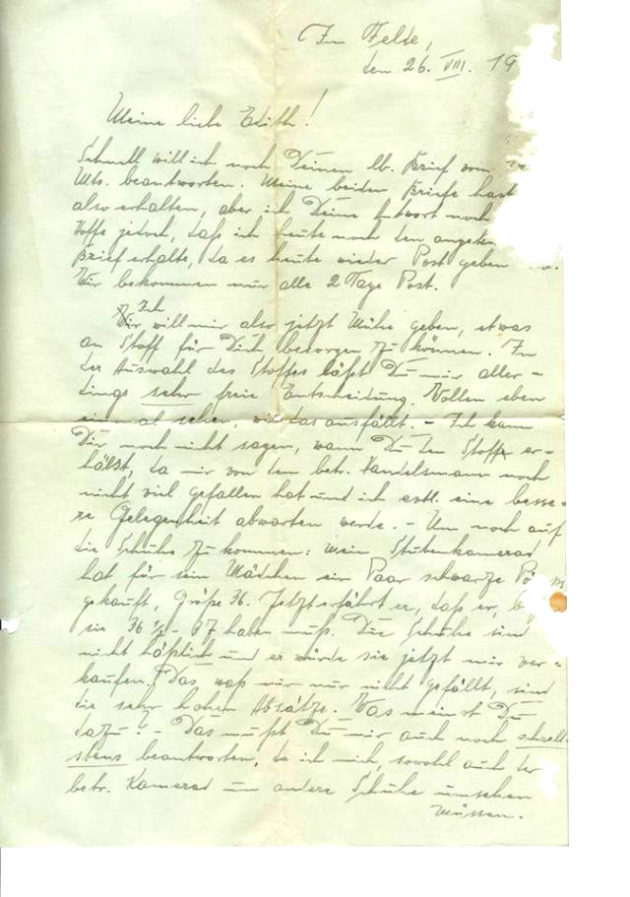 Im Felde,
den 26. VIII. 19
Meine liebe Edith!
Schnell will ich noch Deinen lb. Brief vom
Mts. beantworten. Meine beiden Briefe hast
also erhalten, aber ich Deine Antwort noch
Hoffe jedoch, daß ich heute noch den
Brief erhalte, da es heute wieder Post geben
Wir bekommen nur alle 2 Tage Post.
Ich
will mir also jetzt Mühe geben, etwas
an Stoff für Dich besorgen zu können. In
der Auswahl des Stoffes läßt Du mir aller-
dings sehr freie Entscheidung. Wollen eben
einmal sehen, wie das ausfällt. - Ich kann
Dir noch nicht sagen, wann Du den Stoff er-
hälst, da mir von dem betr. Handelsmann noch
nicht viel gefallen hat und ich evtl. eine besse-
re Gelegenheit abwarten werde. - Um noch auf
die Schuhe zu kommen: mein Stubenkamerad
hat für sein Mädchen ein Paar schwarze
gekauft, Größe 36. Jetzt erfährt er, daß er,
sie 36 1/2 - 37 haben muß. Die Schuhe sind
nicht häßlich und er würde sie jetzt mir ver-
kaufen. Das was mir nur nicht gefällt, sind
die sehr hohen Absätze. Was meinst Du
dazu? - Das mußt Du mir auch noch schnell-
stens beantworten, da ich mich, sowohl auch der
betr. Kamerad um andere Schuhe umsehen
müssen.